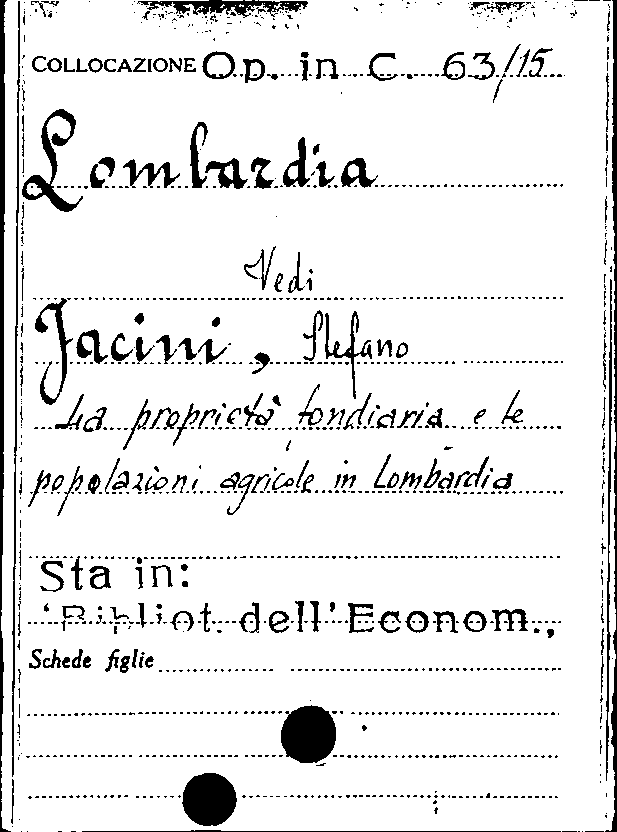 COLLOCAZIONE Op. in C. 63/15
Lombardia
Vedi
Jacini, Stefano
La proprietà fondiaria e le
popolazioni agricole in Lombardia
Sta in:
'Bibliot. dell' Econom.,
Schede figlie